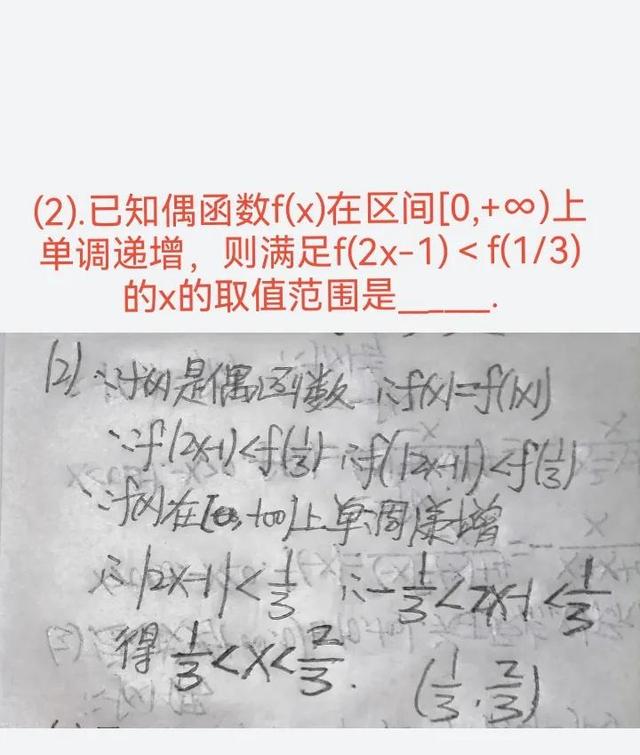 (2).已知偶函数f(x)在区间[0,+∞)上
单调递增，则满足f(2x-1)<f(1/3)
的x的取值范围是_____.
(2) ∵f(x)是偶函数 ∴f(x)=f(|x|)
∵f(2x-1)<f(1/3) ∴f(|2x-1|)<f(1/3)
∵f(x)在[0,+∞)上单调递增
∴|2x-1|<1/3 ∴-1/3<2x-1<1/3
得 1/3<x<2/3. (1/3,2/3)